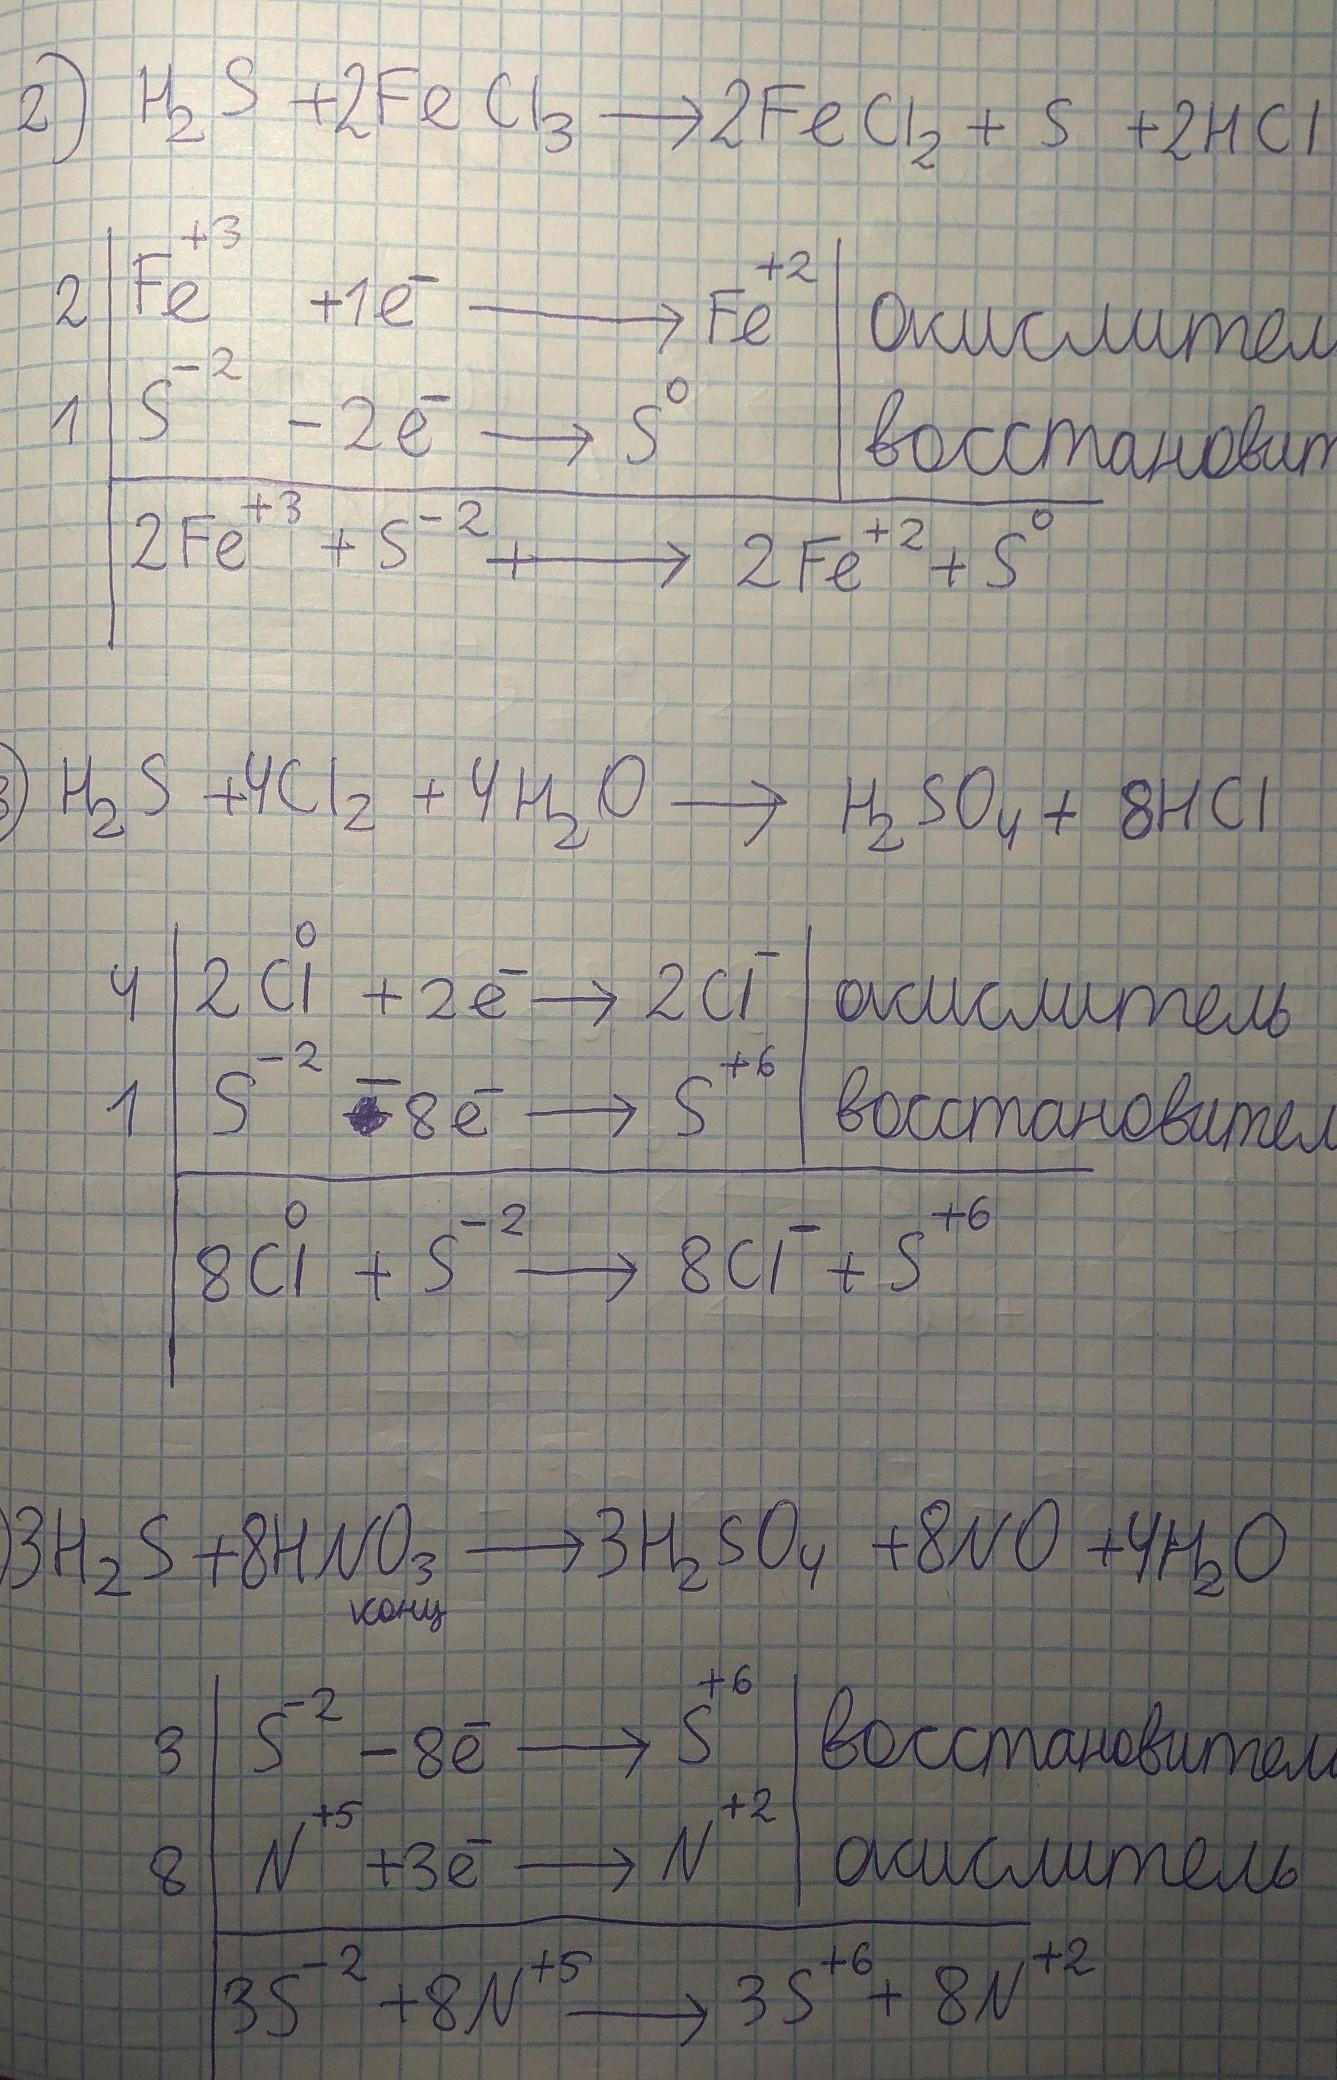 2) H₂S +2FeCl₃ → 2FeCl₂ + S +2HCl
2 | Fe⁺³ +1e⁻ → Fe⁺² | окислител
1 | S⁻² - 2e⁻ → S⁰ | восстановит
2Fe⁺³ + S⁻² + → 2Fe⁺² + S⁰
3) H₂S +4Cl₂ + 4H₂O → H₂SO₄ + 8HCl
4 | 2Cl⁰ + 2e⁻ → 2Cl⁻ | окислитель
1 | S⁻² - 8e⁻ → S⁺⁶ | восстановител
8Cl⁰ + S⁻² → 8Cl⁻ + S⁺⁶
) 3H₂S +8HNO₃ → 3H₂SO₄ +8NO +4H₂O
конц
3 | S⁻² - 8e⁻ → S⁺⁶ | восстановител
8 | N⁺⁵ +3e⁻ → N⁺² | окислитель
3S⁻² +8N⁺⁵ → 3S⁺⁶ + 8N⁺²